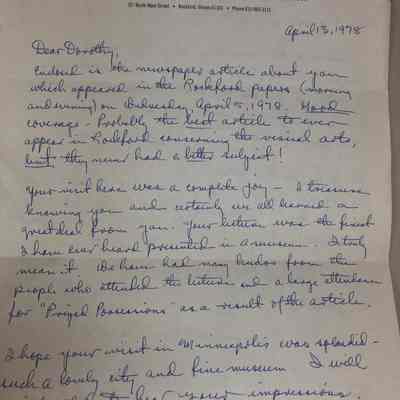 737 North Main Street • Rockford, Illinois 61103 • Phone 815/965-3131
April 13, 1978
Dear Dorothy,
Enclosed is the newspaper article about you
which appeared in the Rockford papers (morning
and evening) on Wednesday, April 5, 1978. Good
coverage - Probably the best article to ever
appear in Rockford concerning the visual arts,
but they never had a better subject!
Your visit here was a complete joy - I treasure
knowing you and certainly we all learned a
great deal from you. Your lecture was the finest
I have ever heard presented in a museum. I truly
mean it. We have had many kudos from the
people who attended the lecture and a large attendance
for "Prized Possessions" as a result of the article.
I hope your visit in Minneapolis was splendid -
such a lovely city and fine museum I will
your impressions.